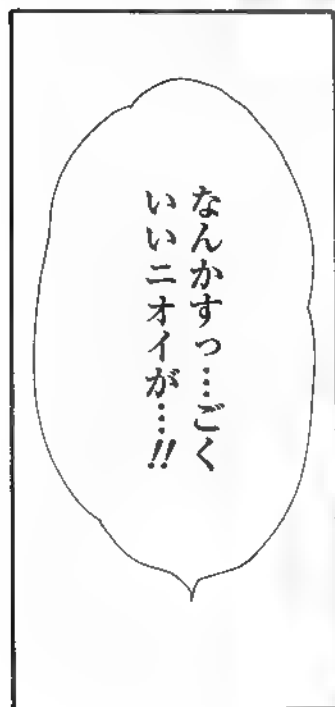 なんかすっ…ごく
いいニオイが…!!